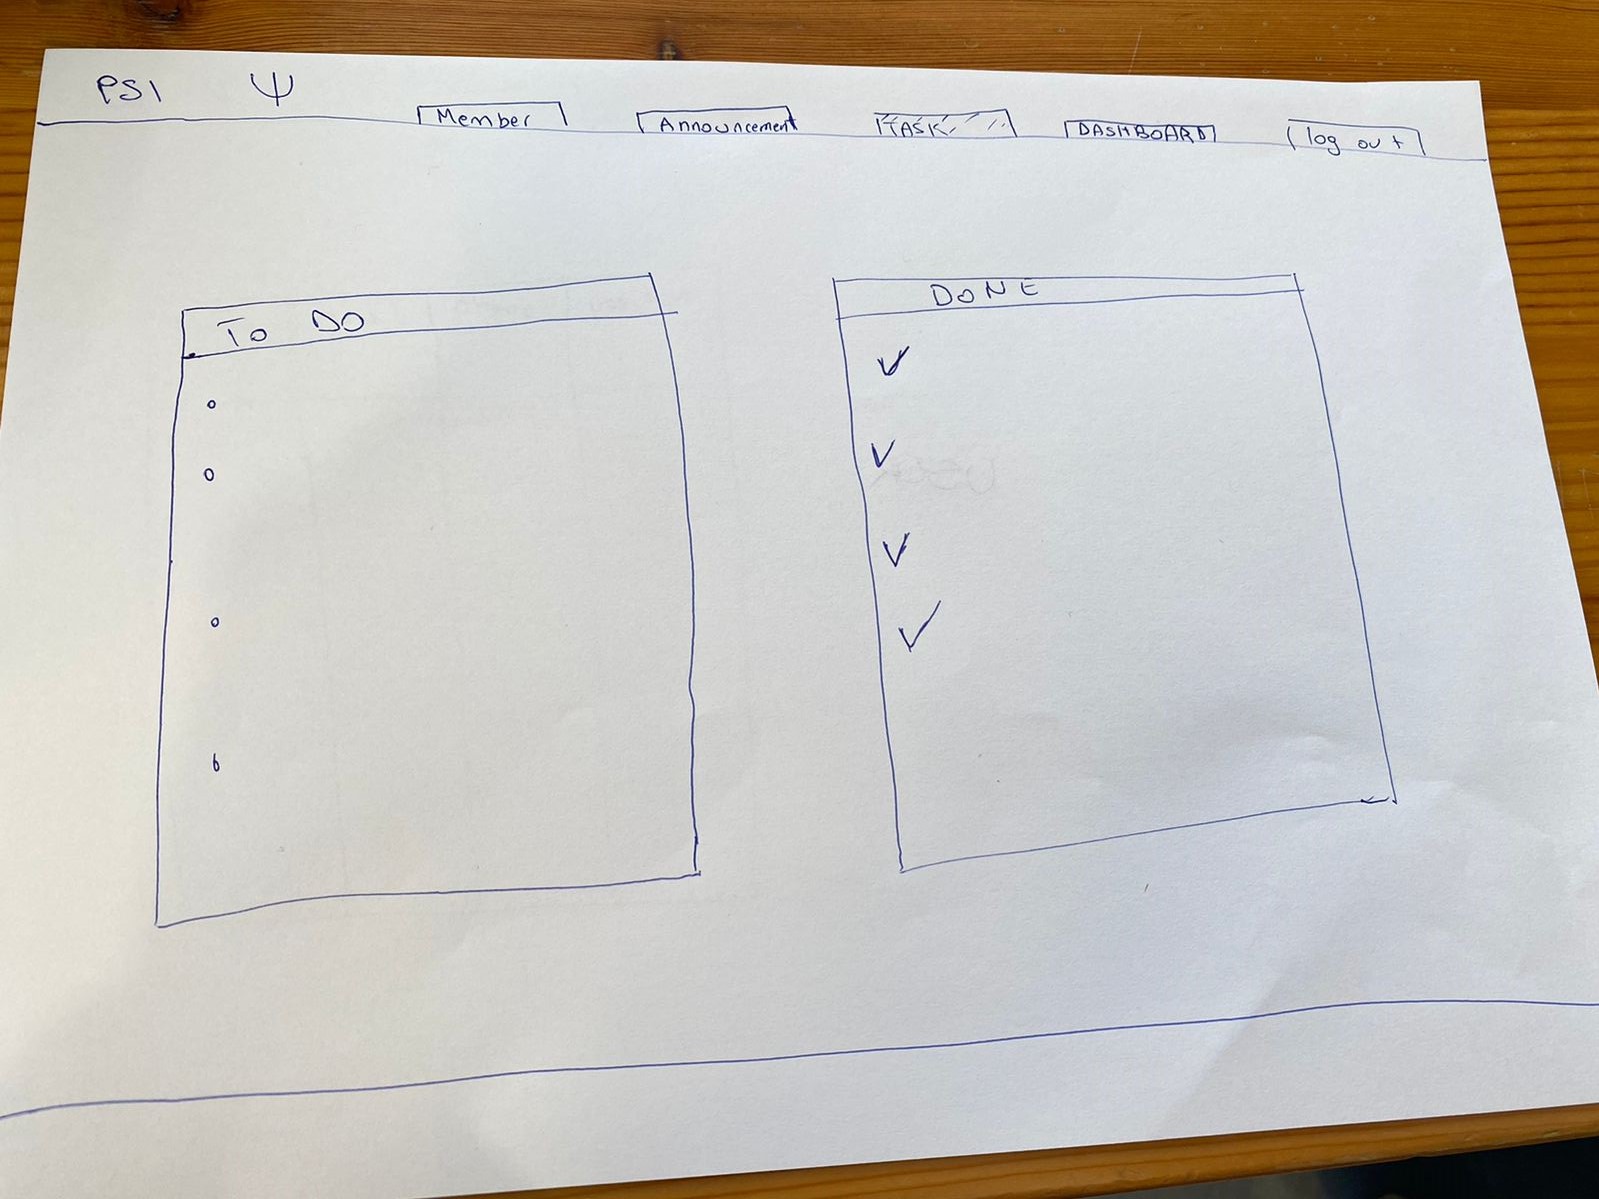 PSI Ψ
Member Announcement TASK DASHBOARD log out
To DO
DONE